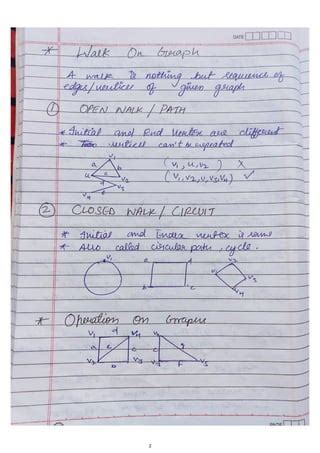 DATE
* Walk On Graph
A walk Is nothing but sequence of
edges/vertices of given graph
① OPEN WALK / PATH
* Initial and End Vertex are different
* vertices can't be repeated
V1
a b
u c V2
V3
V4
(V1, u, V2) X
(V1, V2, u, V3, V4) ✓
② CLOSED WALK / CIRCUIT
* Initial and Index vertex is same
* Also called circular path, cycle.
V1
a d
b c
V2
V1 V3
V4
* Operation On Graphs
V1 d V4 V5
a c e g
V2 b V3 f V5
PAGE
2